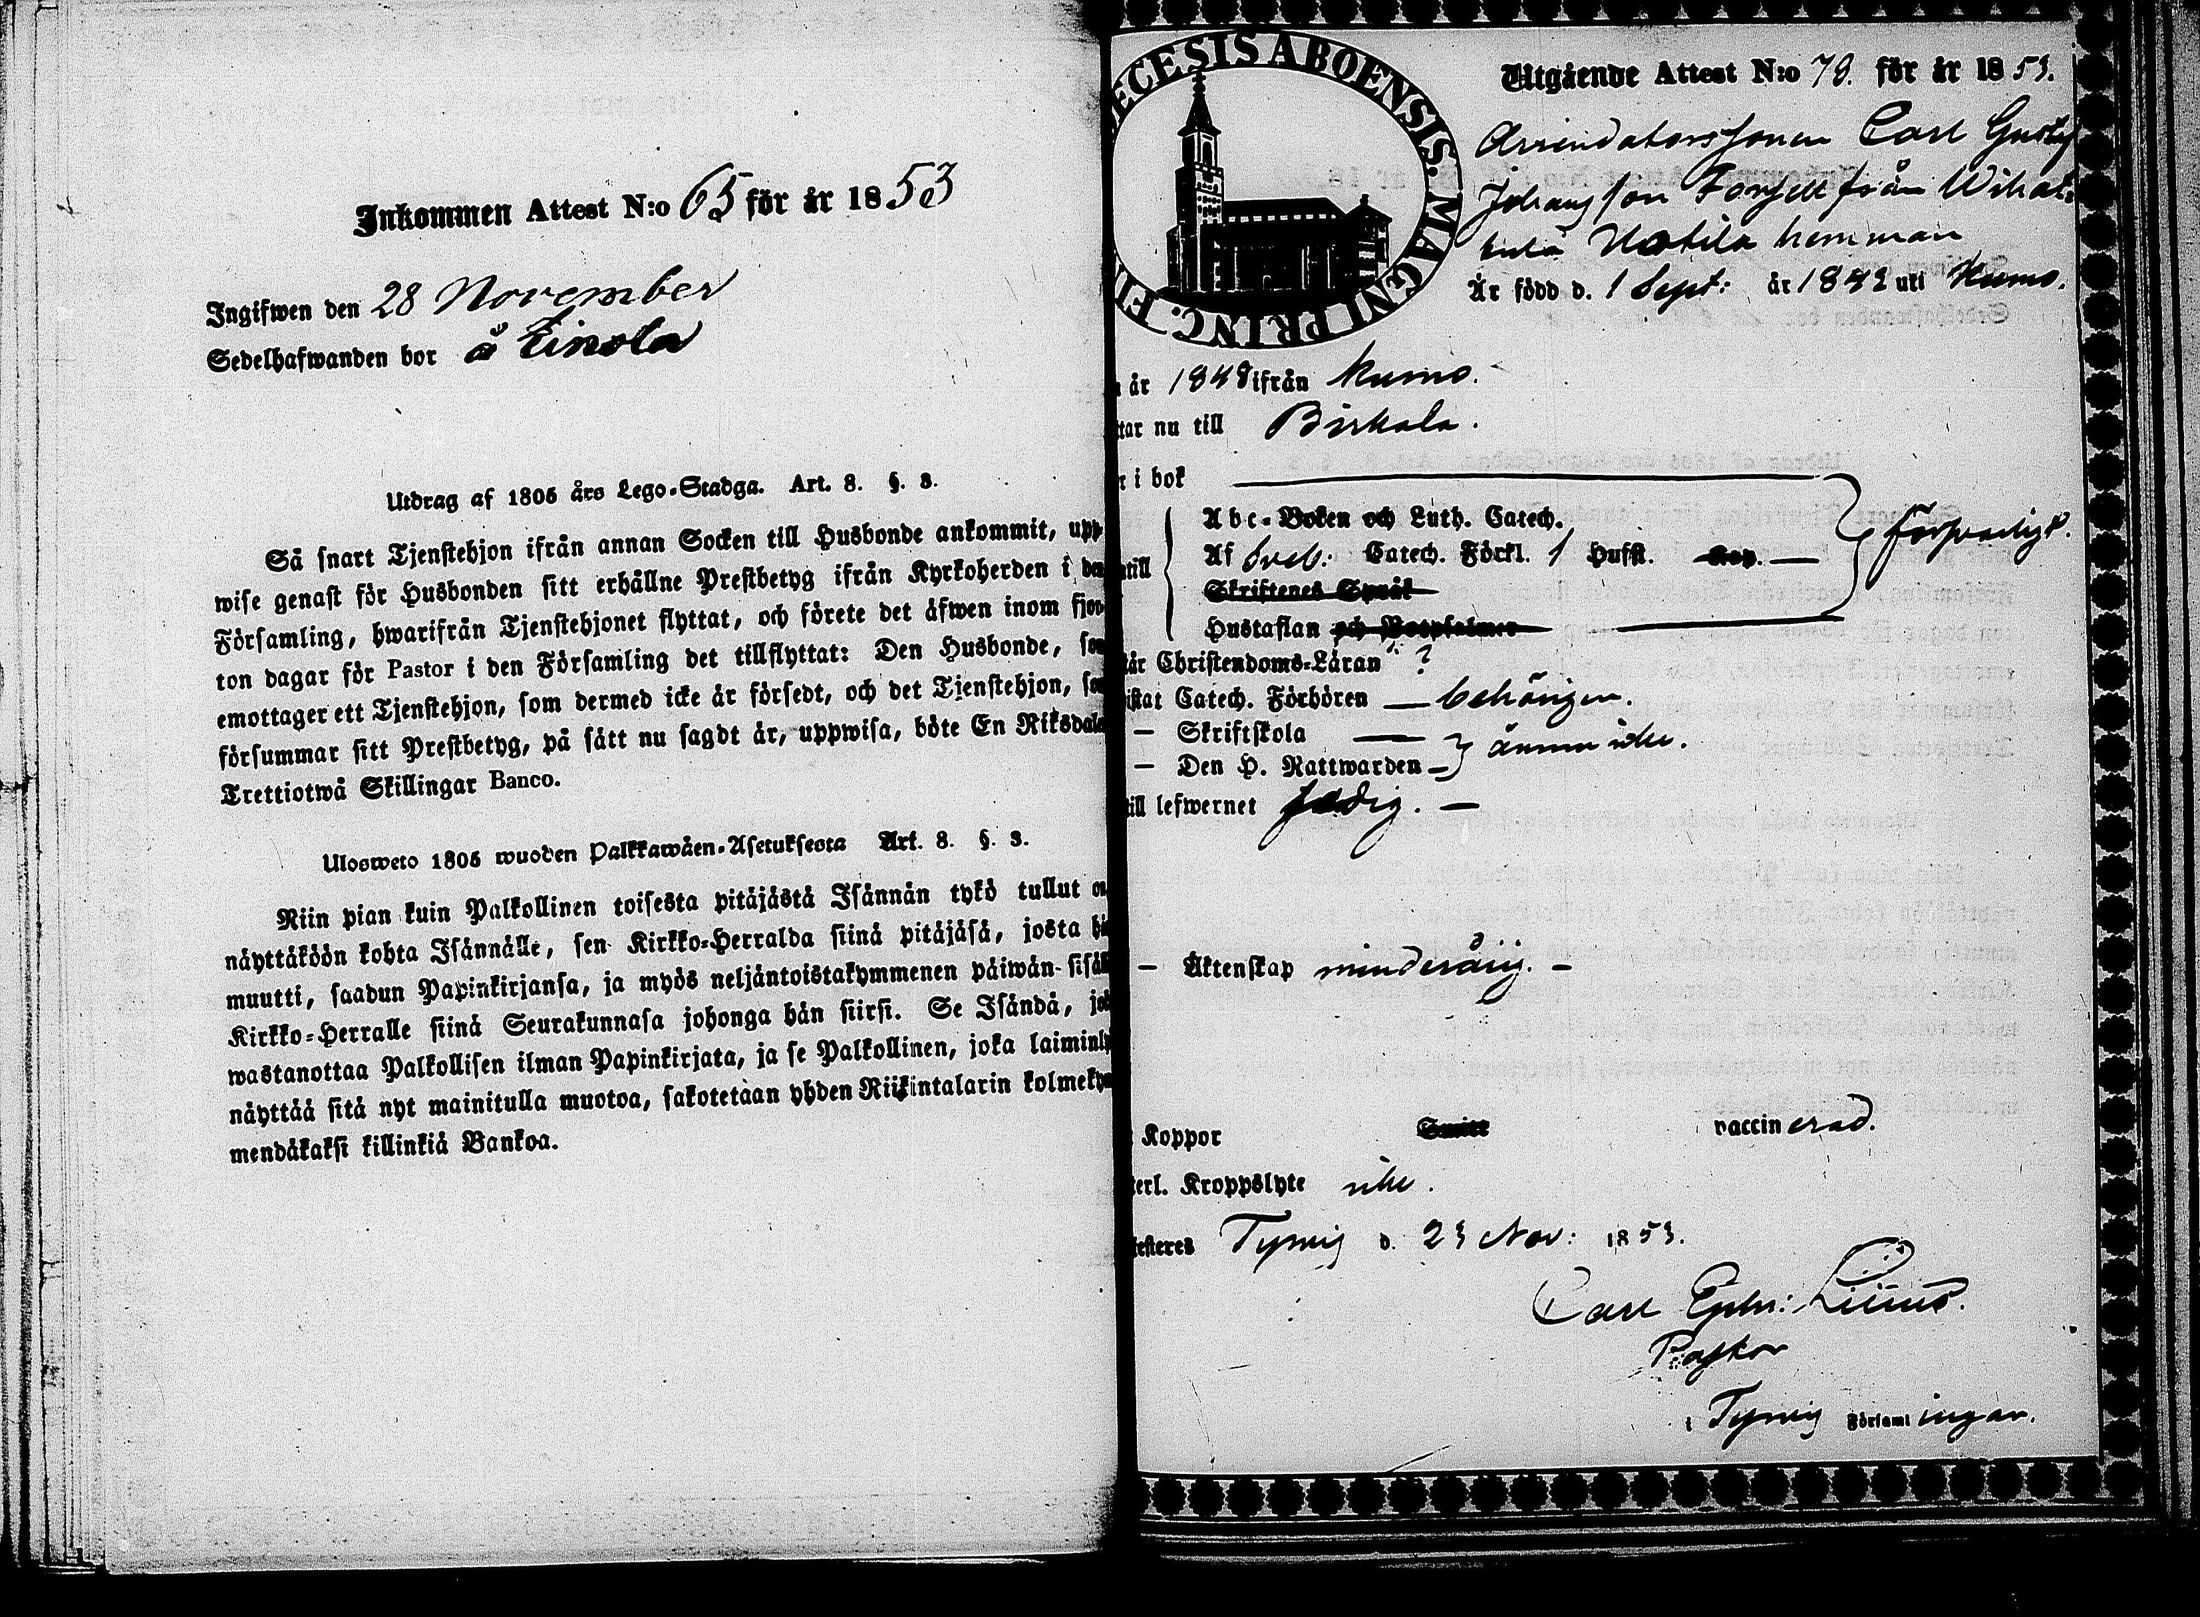 Inkommen Attest N:o 65 för år 1853
Ingifwen den 28 November
Sedelhafwanden bor å Einola
Utdrag af 1805 års Lego-Stadga. Art. 8. §. 3.
Så snart Tjenstehjon ifrån annan Socken till Husbonde ankommit, upp-
wise genast för Husbonden sitt erhållne Prestbetyg ifrån Kyrkoherden i den
Församling, hwarifrån Tjenstehjonet flyttat, och förete det äfwen inom fjor-
ton dagar för Pastor i den Församling det tillflyttat: Den Husbonde, som
emottager ett Tjenstehjon, som dermed icke är försedt, och det Tjenstehjon, som
försummar sitt Prestbetyg, på sätt nu sagdt är, uppwisa, böte En Riksdaler
Trettiotwå Skillingar Banco.
Ulosweto 1805 wuoden Palkkawäen-Asetuksesta Art. 8. §. 3.
Niin pian kuin Palkollinen toisesta pitäjästä Isännän tykö tullut on
näyttäköön kohta Isännälle, sen Kirkko-Herralda siinä pitäjäsä, josta hä
muutti, saadun Papinkirjansa, ja myös neljäntoistakymmenen päiwän sisäl
Kirkko-Herralle siinä Seurakunnasa johonga hän siirsi. Se Isändä, jok
wastanottaa Palkollisen ilman Papinkirjata, ja se Palkollinen, joka laiminly
näyttää sitä nyt mainitulla muotoa, sakotetaan yhden Riikintalarin kolmekym
mendäkaksi killinkiä Bankoa.
ECESIS ABOENSIS. MAGNI PRINC. FI
Utgående Attest N:o 78. för år 1853.
Arrendatorssonen Carl Gustaf
Johansson Forsell från
Hatila hemman
Är född d. 1 Sept: år 1842 uti Kumo.
år 1848 ifrån Kumo.
tar nu till Birkala.
r i bok
Abc-Boken och Luth. Catech.
Af Sveb: Catech. Förkl. 1 Husst. Kap. —
Skriftenes Språk
Hustaflan och Botpsalmer
försvarligt.
tår Christendoms-Läran ?
istat Catech. Förhören — behörigen.
— Skriftskola —
— Den H. Nattwarden — ännu icke.
till lefwernet sedig. —
— Äktenskap minderårig. —
Koppor Smitt vaccinerad.
terl. Kroppslyte icke.
testeres Tyrvis d. 23 Nov: 1853.
Carl Ephr: Lilius.
Pastor
i Tyrvis Församlingar.